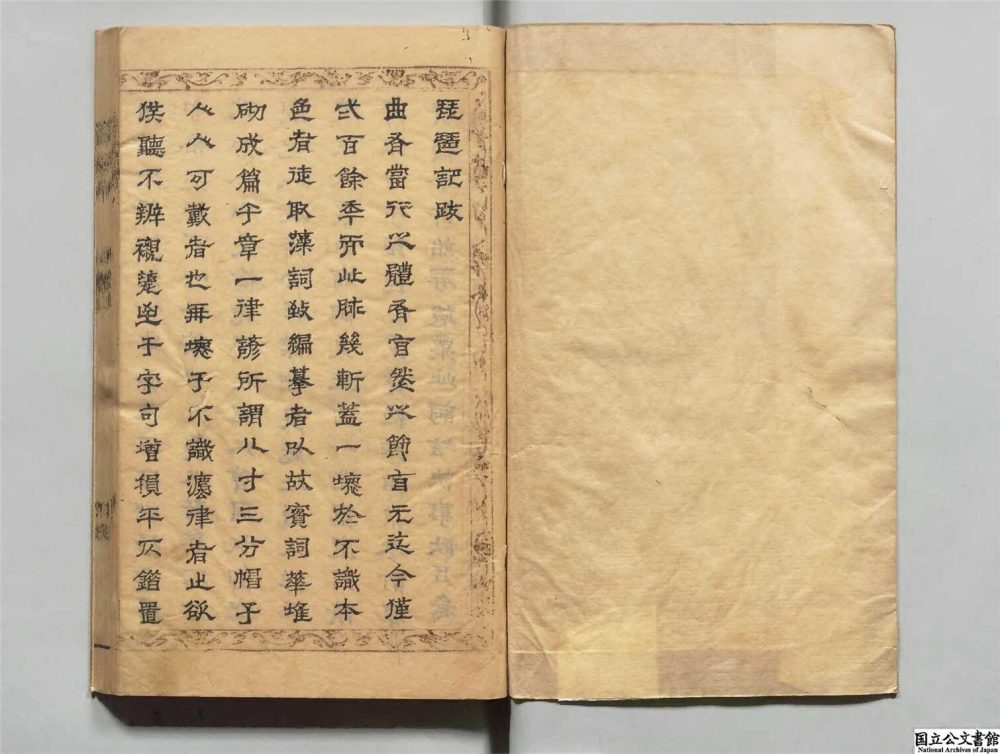 琵琶記跋
曲有當行之體有自然之節自元迄今僅
弍百餘年而此脉幾斬蓋一壞於不識本
色者徒取藻詞致編摹者以故實詞華堆
砌成篇千章一律諺所謂八寸三分帽子
人人可戴者也再壞于不識灋律者止欲
聽不辨襯于字句增損平仄錯置
国立公文書館
National Archives of Japan